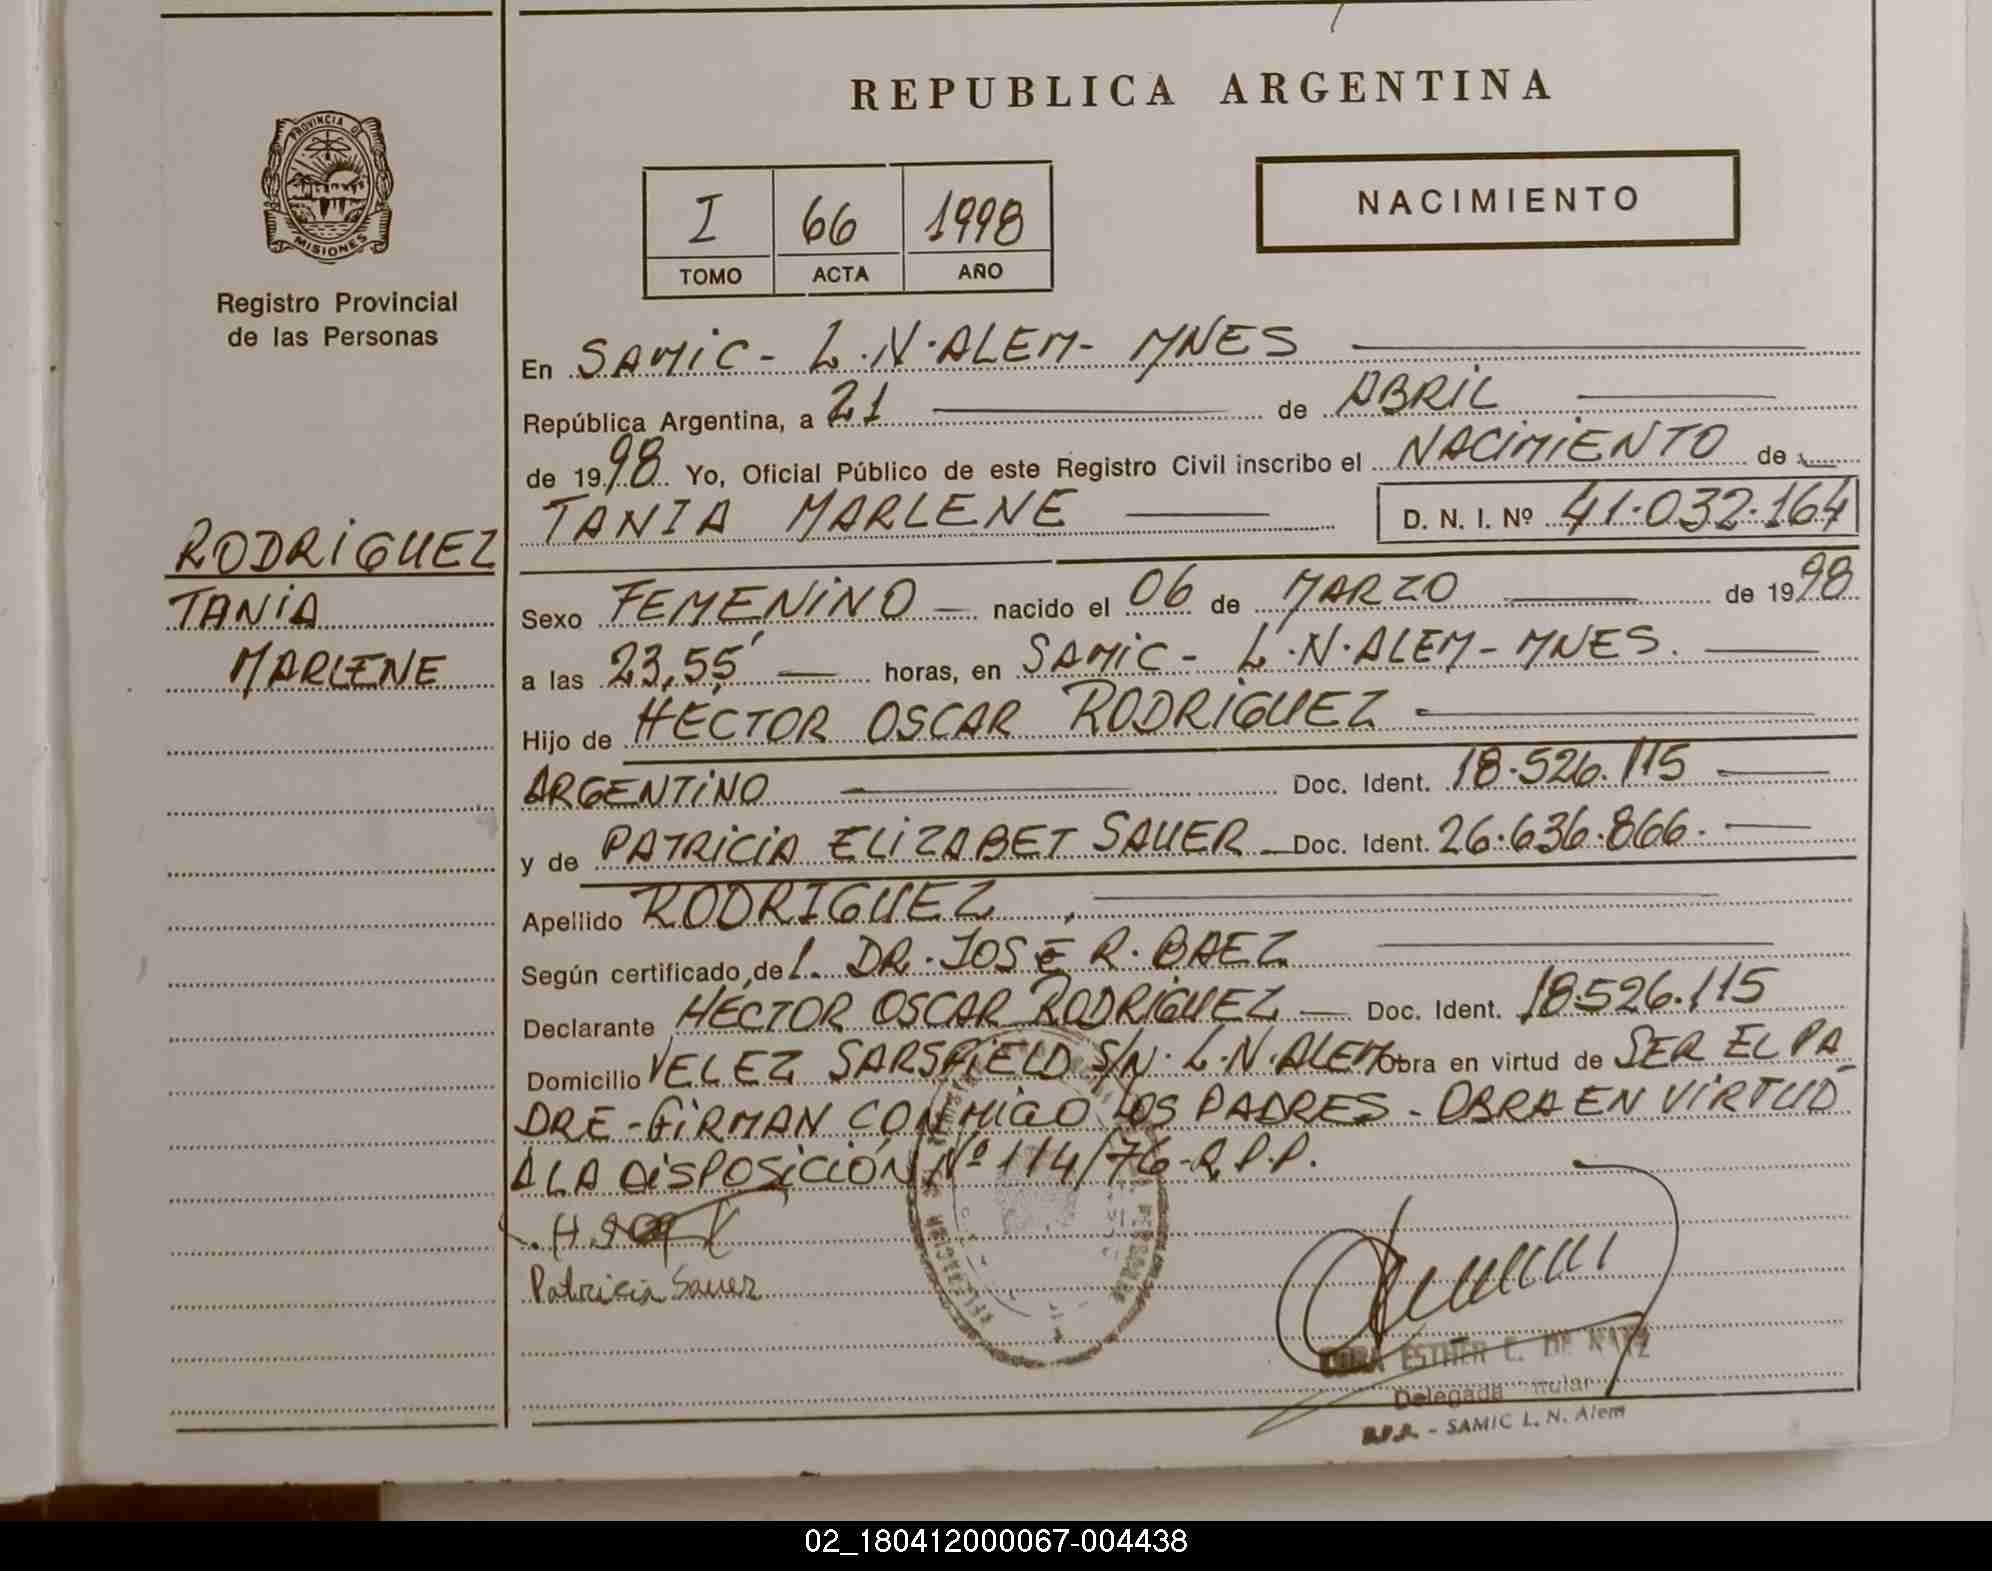 REPUBLICA ARGENTINA
PROVINCIA DE
MISIONES
Registro Provincial
de las Personas
I 66 1998
TOMO ACTA AÑO
NACIMIENTO
RODRIGUEZ
TANIA
MARLENE
En SAMIC - L.N.ALEM - MNES
República Argentina, a 21 de ABRIL
de 1998 Yo, Oficial Público de este Registro Civil inscribo el NACIMIENTO de
TANIA MARLENE D. N. I. Nº 41.032.164
Sexo FEMENINO nacido el 06 de MARZO de 1998
a las 23,55' horas, en SAMIC - L.N.ALEM - MNES.
Hijo de HECTOR OSCAR RODRIGUEZ
ARGENTINO Doc. Ident. 18.526.115
y de PATRICIA ELIZABET SAUER Doc. Ident. 26.636.866.
Apellido RODRIGUEZ
Según certificado de l. DR. JOSE R. BAEZ
Declarante HECTOR OSCAR RODRIGUEZ Doc. Ident. 18526.115
Domicilio VELEZ SARSFIELD S/N. L.N.ALEM Obra en virtud de SER EL PA-
DRE - FIRMAN CONMIGO LOS PADRES - OBRA EN VIRTUD
A LA DISPOSICIÓN Nº 114/76 - R.P.P.
Patricia Sauer
ESTHER C. DE
Delegada Titular
R.P.P. - SAMIC L. N. Alem
02_180412000067-004438